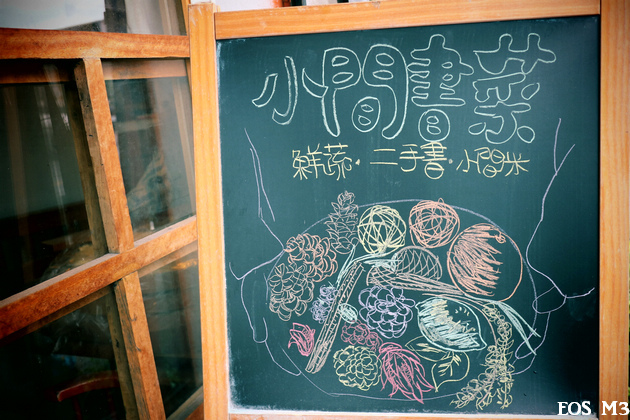 小間書菜
鮮蔬·二手書·小間米
EOS M3